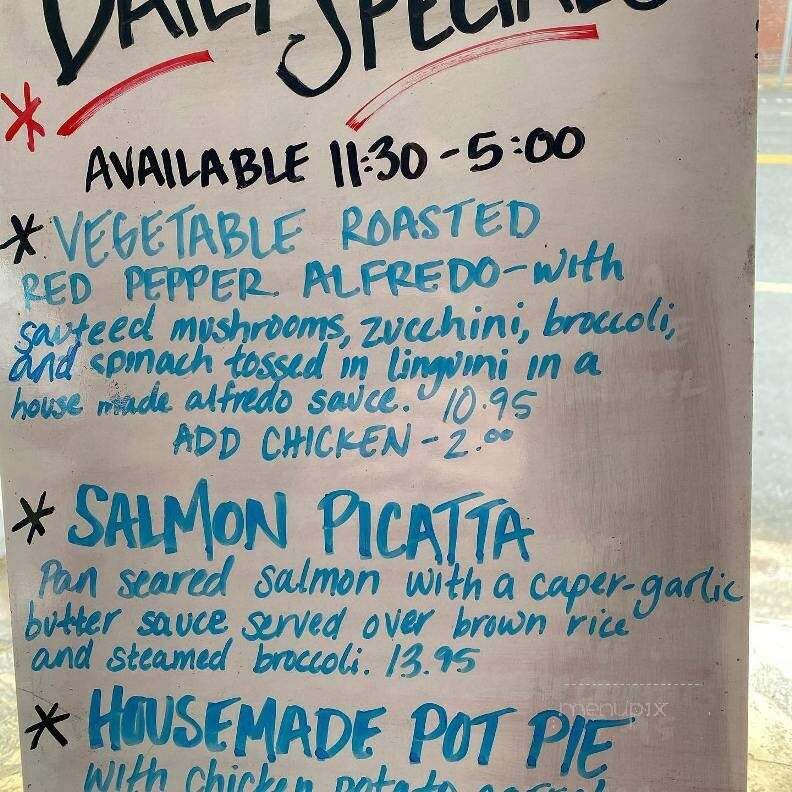 DAILY SPECIALS
* AVAILABLE 11:30 - 5:00
* VEGETABLE ROASTED
RED PEPPER ALFREDO - with
sauteed mushrooms, zucchini, broccoli,
and spinach tossed in linguini in a
house made alfredo sauce. 10.95
ADD CHICKEN - 2.00
* SALMON PICATTA
Pan seared salmon with a caper-garlic
butter sauce served over brown rice
and steamed broccoli. 13.95
menupix
* HOUSEMADE POT PIE
with chicken potato